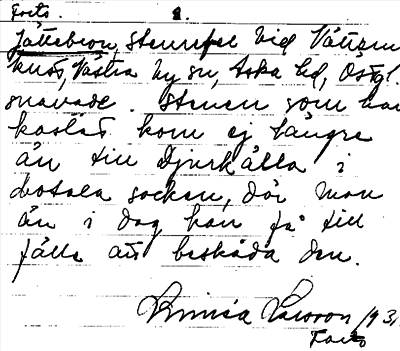 Forts. 2.
Jättebron, Stenrfel vid Vättern
kust, Västra Ny sn, Aska hd, Östgl.
snavade. Stenen som han
kastat kom ej längre
än till Djurkälla i
Motala socken, där man
än i dag kan få till
fälle att beskåda den.
Linnéa Larsson 1931
Forts